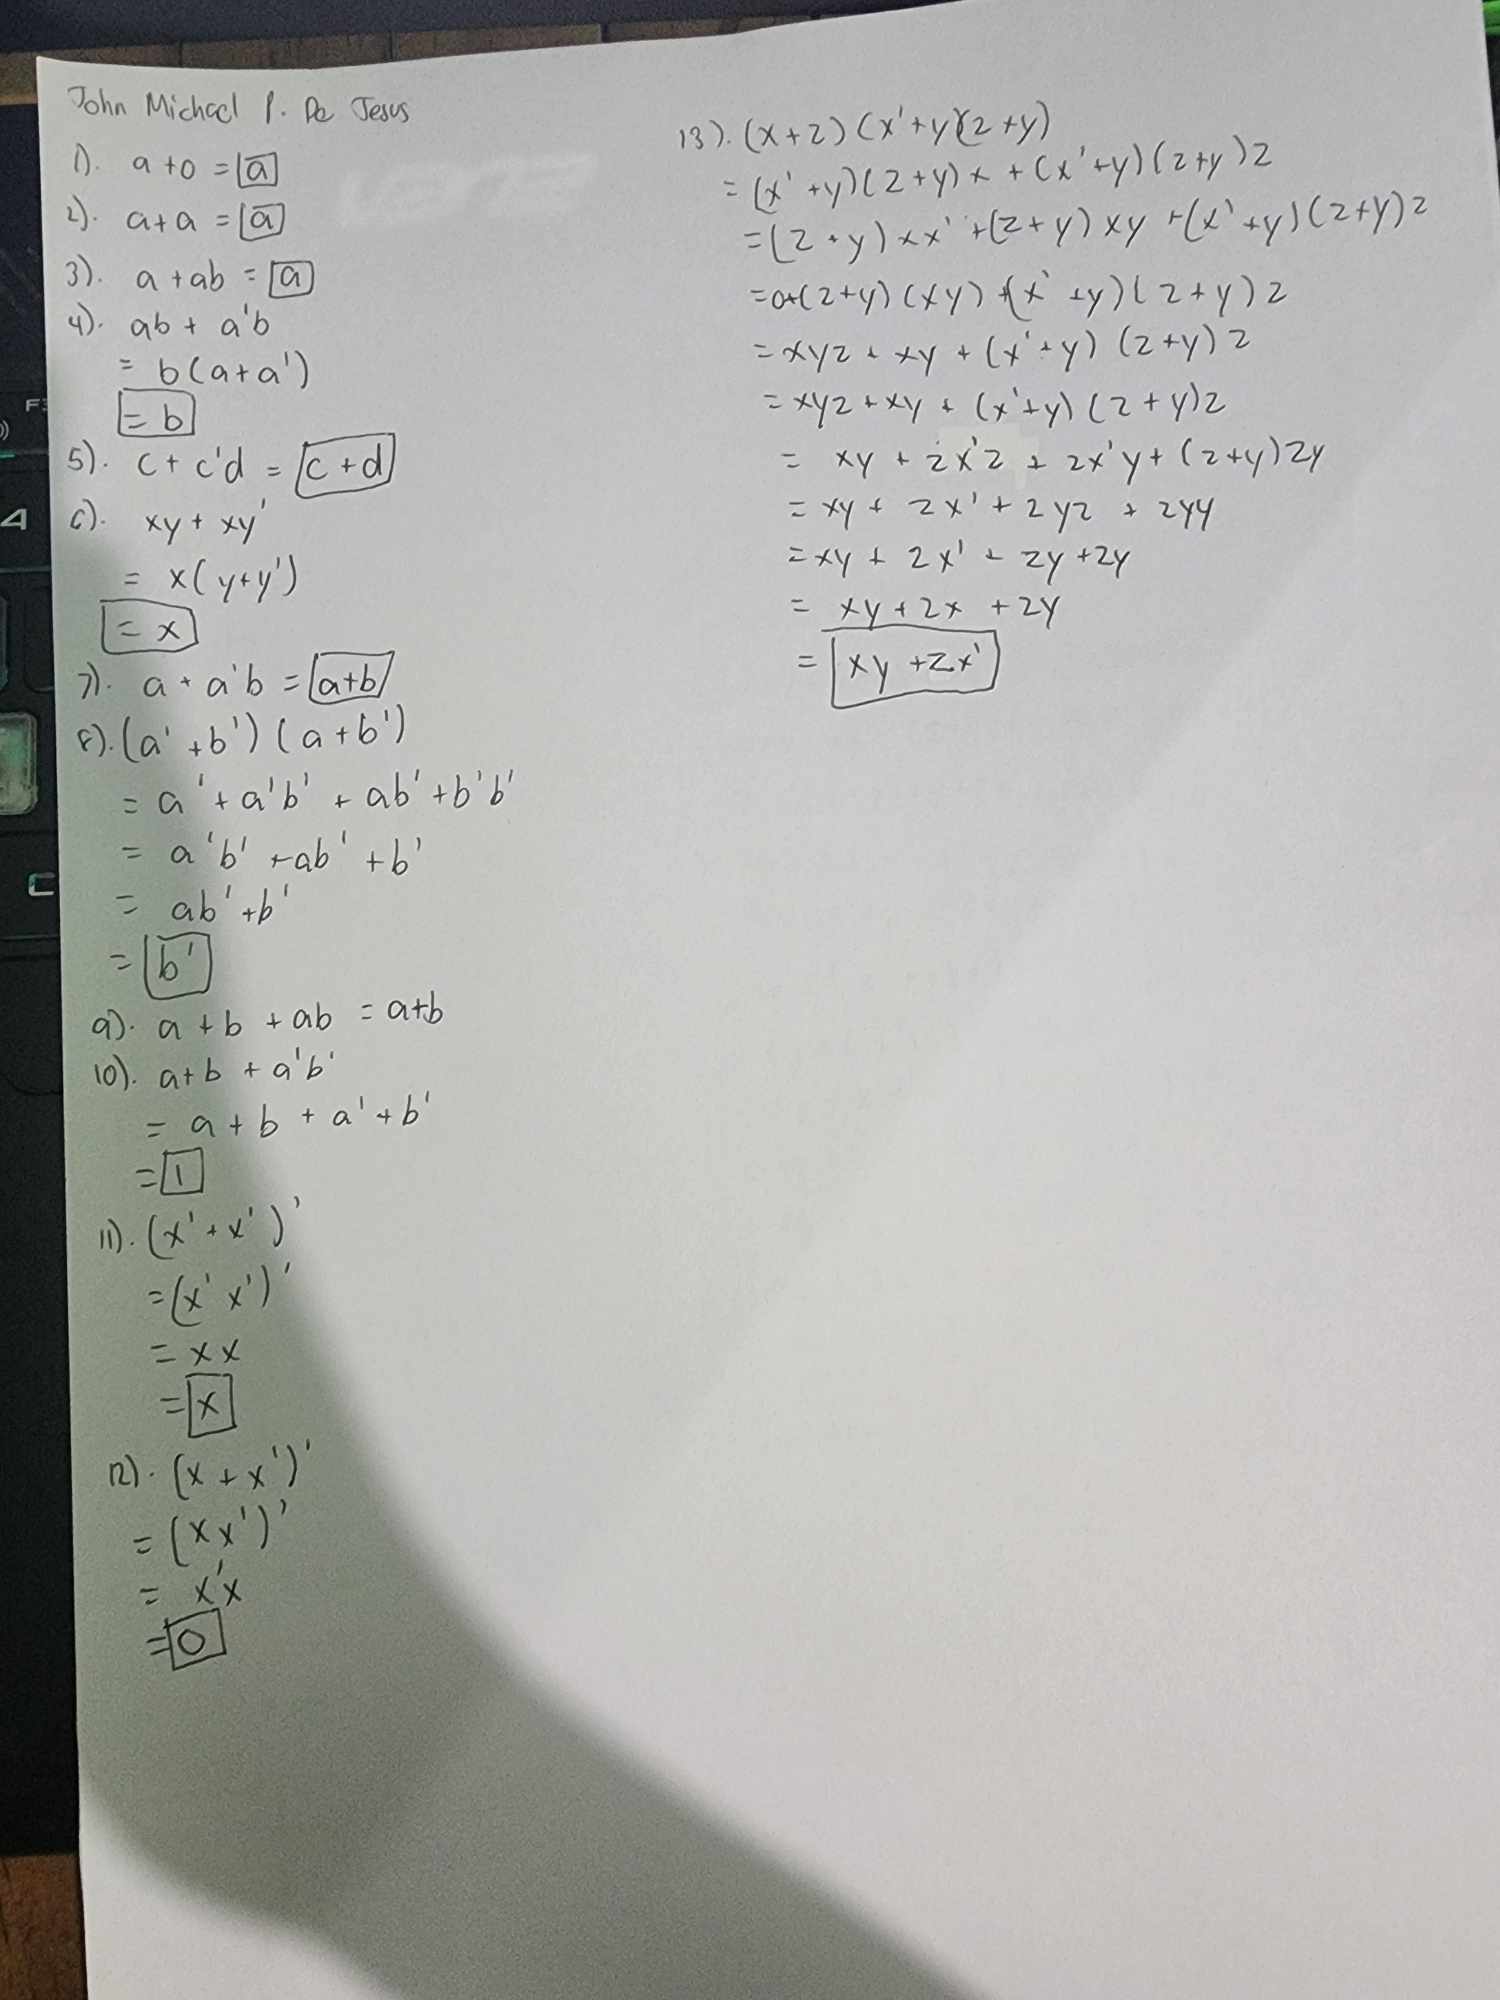 John Michael P. De Jesus
1). a + 0 = a
2). a + a = a
3). a + ab = a
4). ab + a'b
= b(a + a')
= b
5). c + c'd = c + d
6). xy + xy'
= x(y + y')
= x
7). a + a'b = a+b
8). (a' + b') (a + b')
= a' + a'b' + ab' + b'b'
= a'b' + ab' + b'
= ab' + b'
= b'
9). a + b + ab = a+b
10). a + b + a'b'
= a + b + a' + b'
= 1
11). (x' + x')'
= (x' x')'
= xx
= x
12). (x + x')'
= (xx')'
= x'x
= 0
13). (x+z) (x'+y)(z+y)
= (x'+y)(z+y) x + (x'+y) (z+y) z
= (z+y) xx' + (z+y) xy + (x'+y) (z+y) z
= 0+(z+y) (xy) + (x'+y) (z+y) z
= xyz + xy + (x'+y) (z+y) z
= xyz + xy + (x'+y) (z+y) z
= xy + zx'z + zx'y + (z+y) zy
= xy + zx' + zyz + zyy
= xy + zx' + zy + zy
= xy + zx + zy
= xy + zx'
4
C